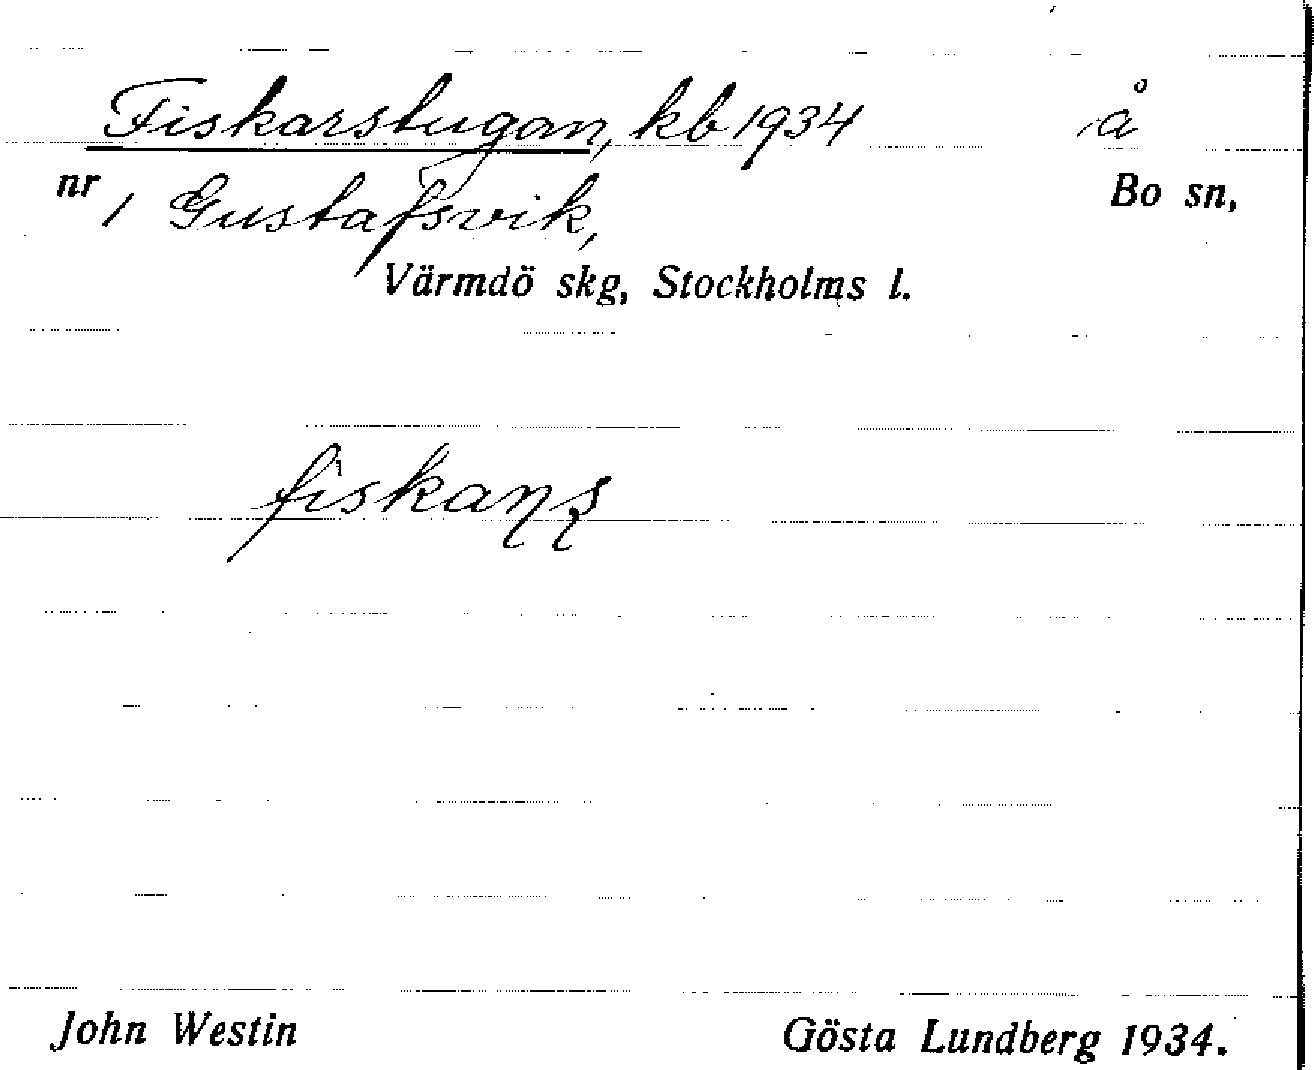 Fiskarstugan, kb 1934 å
nr 1 Gustafsvik, Bo sn,
Värmdö skg, Stockholms l.
John Westin Gösta Lundberg 1934.